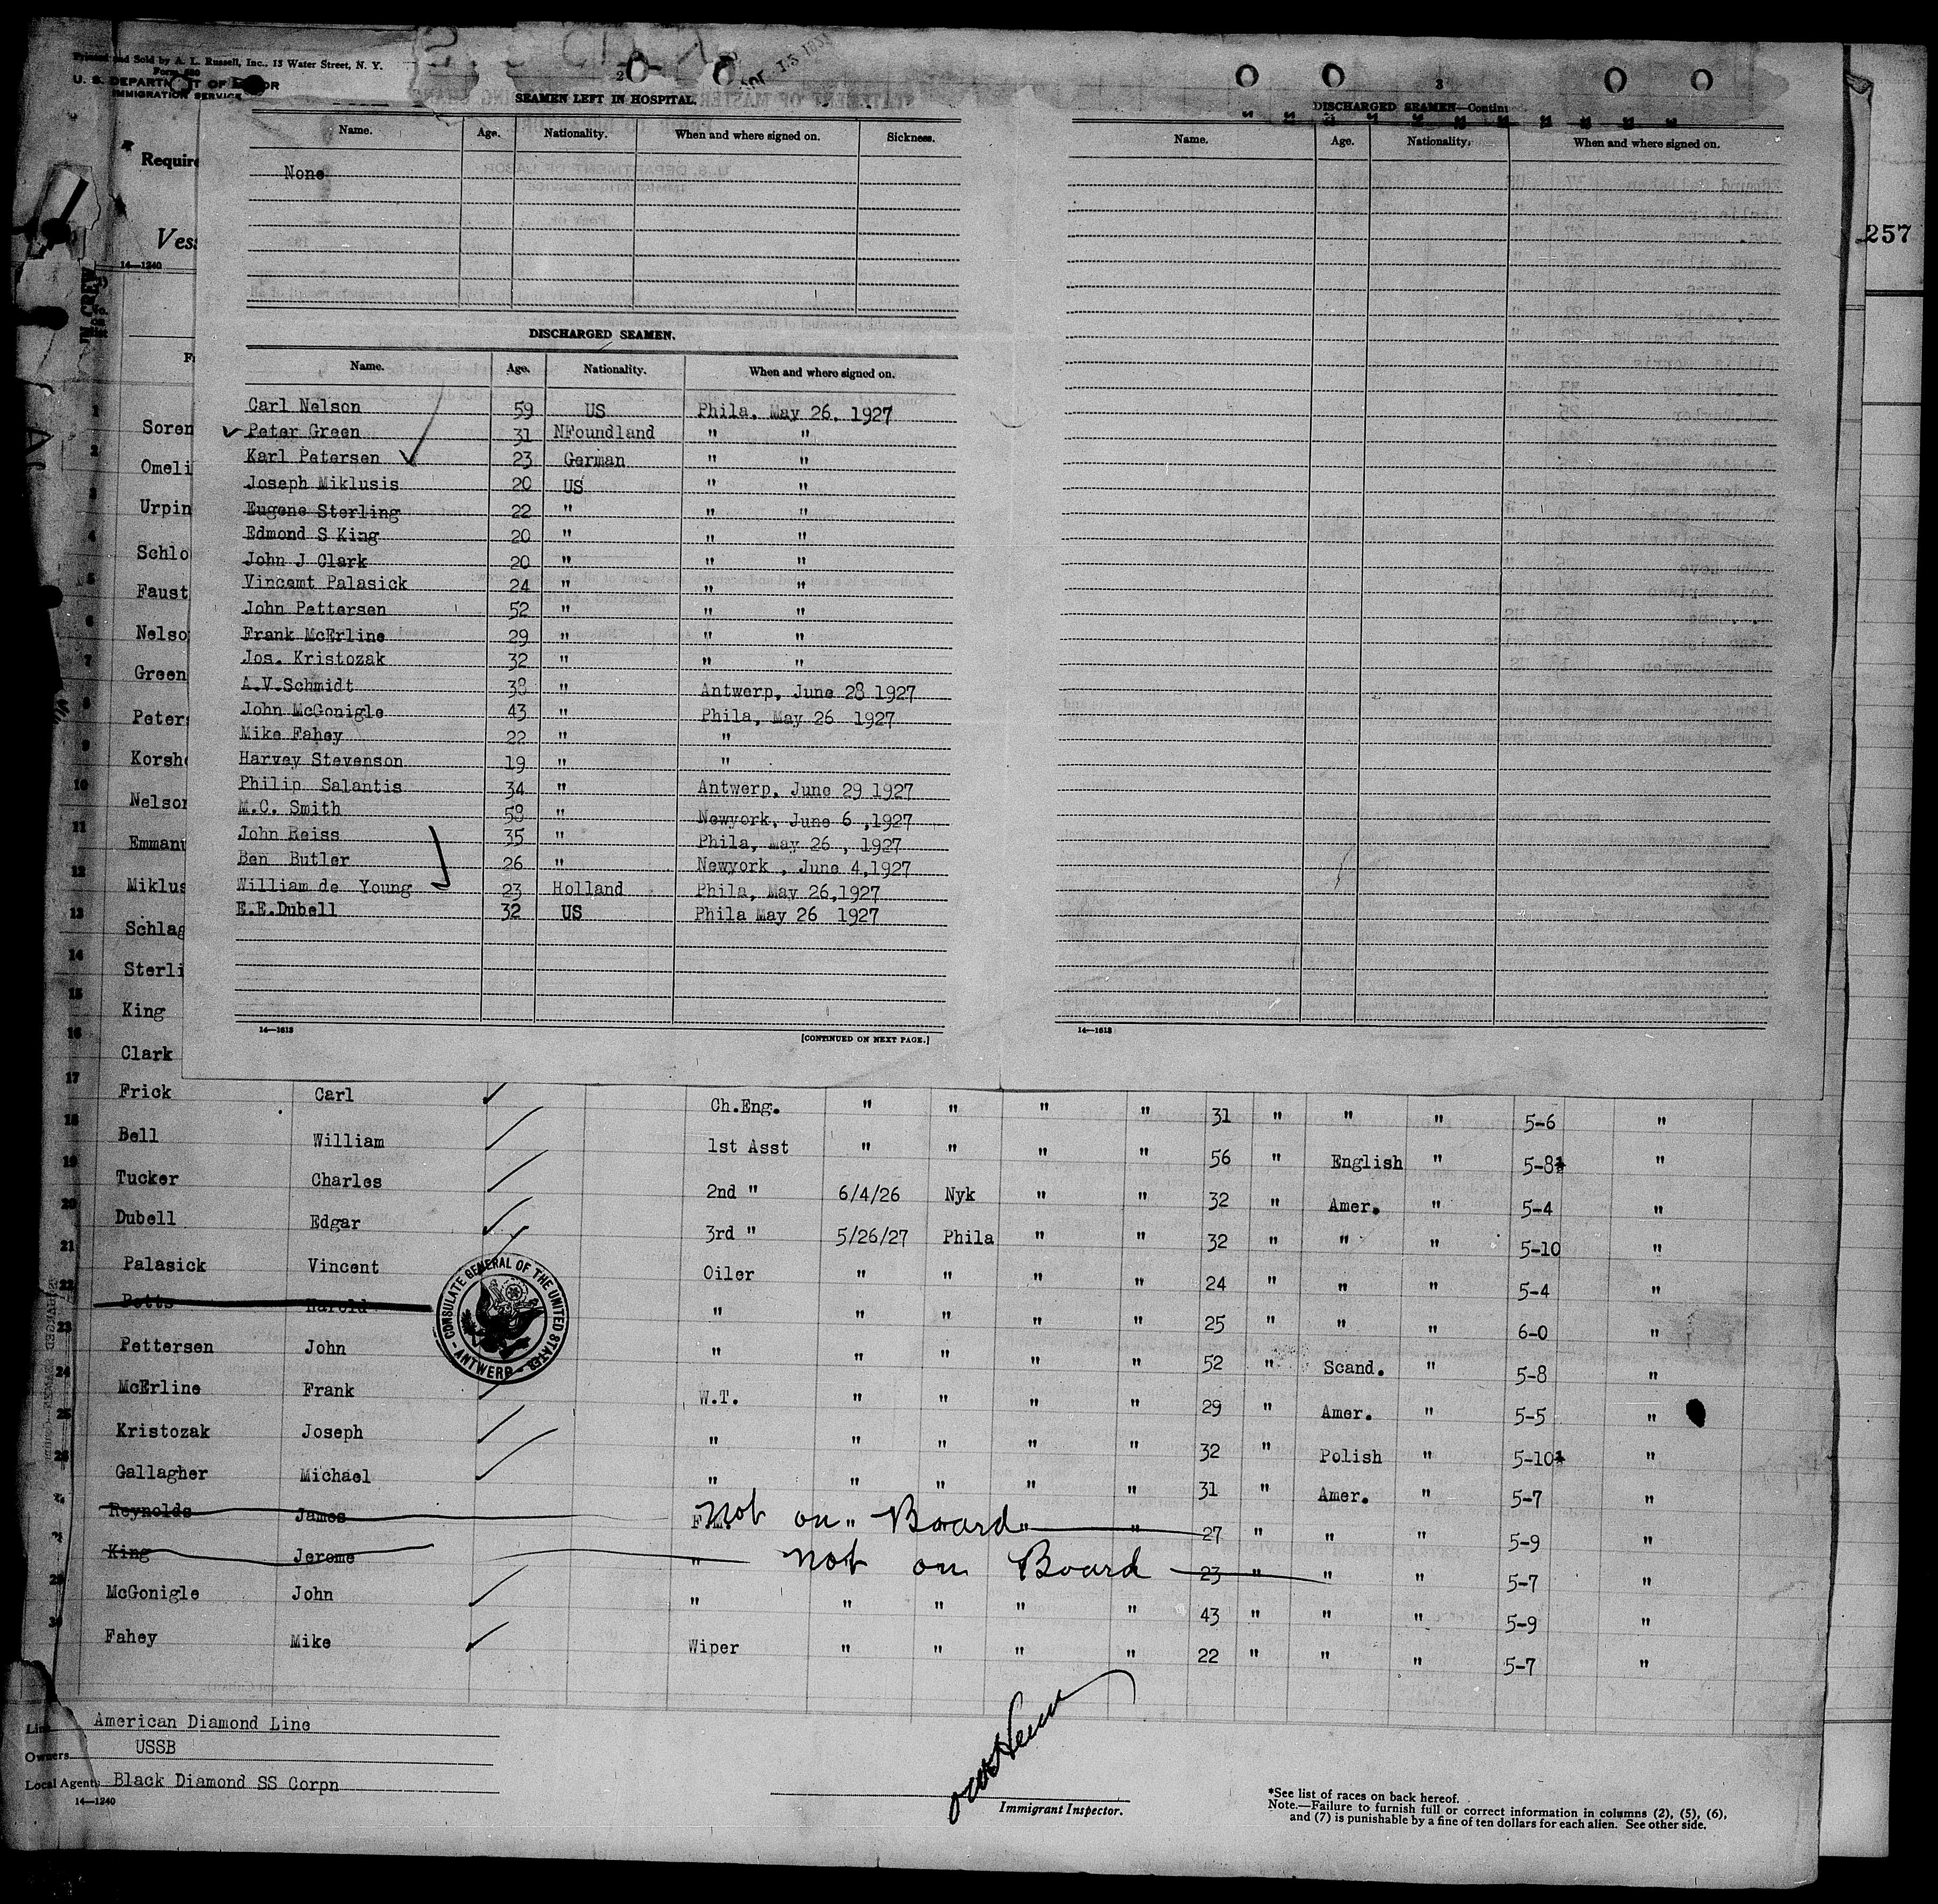 Printed and Sold by A. L. Russell, Inc., 13 Water Street, N. Y.
U. S. DEPARTMENT OF LABOR
IMMIGRATION SERVICE
Require
Vess
14—1240
257
2
SEAMEN LEFT IN HOSPITAL.
Name. Age. Nationality. When and where signed on. Sickness.
None
DISCHARGED SEAMEN.
Name. Age. Nationality. When and where signed on.
Carl Nelson 59 US Phila. May 26. 1927
Peter Green 31 NFoundland " "
Karl Petersen 23 German " "
Joseph Miklusis 20 US " "
Eugene Sterling 22 " " "
Edmond S King 20 " " "
John J Clark 20 " " "
Vincemt Palasick 24 " " "
John Pettersen 52 " " "
Frank McErline 29 " " "
Jos. Kristozak 32 " " "
A.V.Schmidt 38 " Antwerp, June 28 1927
John McGonigle 43 " Phila, May 26 1927
Mike Fahey 22 " "
Harvey Stevenson 19 " "
Philip Salantis 34 " Antwerp, June 29 1927
M.C. Smith 58 " Newyork, June 6 ,1927
John Reiss 35 " Phila, May 26 , 1927
Ben Butler 26 " Newyork , June 4,1927
William de Young 23 Holland Phila, May 26,1927
E.E.Dubell 32 US Phila May 26 1927
14—1613
[CONTINUED ON NEXT PAGE.]
3
DISCHARGED SEAMEN—Contin
Name. Age. Nationality. When and where signed on.
14—1613
1 Soren
2 Omeli
3 Urpin
4 Schlo
5 Faust
6 Nelso
7 Green
8 Peters
9 Korsho
10 Nelson
11 Emmanu
12 Miklus
13 Schlag
14 Sterli
15 King
16 Clark
17 Frick Carl Ch.Eng. " " " " 31 " " " 5-6 "
18 Bell William 1st Asst " " " " 56 " English " 5-8½ "
19 Tucker Charles 2nd " 6/4/26 Nyk " " 32 " Amer. " 5-4 "
20 Dubell Edgar 3rd " 5/26/27 Phila " " 32 " " " 5-10 "
21 Palasick Vincent Oiler " " " " 24 " " " 5-4 "
22 Potts Harold " " " " " 25 " " " 6-0 "
23 Pettersen John " " " " " 52 " Scand. " 5-8 "
24 McErline Frank W.T. " " " " 29 " Amer. " 5-5 "
25 Kristozak Joseph " " " " " 32 " Polish " 5-10½ "
26 Gallagher Michael " " " " " 31 " Amer. " 5-7 "
Reynolds James not on Board 27 " " " 5-9 "
King Jerome " not on Board 23 " " " 5-7 "
29 McGonigle John " " " " " 43 " " " 5-9 "
30 Fahey Mike Wiper " " " " 22 " " " 5-7 "
CONSULATE GENERAL OF THE UNITED STATES
ANTWERP
Line American Diamond Line
Owners USSB
Local Agents Black Diamond SS Corpn
14—1240
Immigrant Inspector.
*See list of races on back hereof.
Note.—Failure to furnish full or correct information in columns (2), (5), (6),
and (7) is punishable by a fine of ten dollars for each alien. See other side.